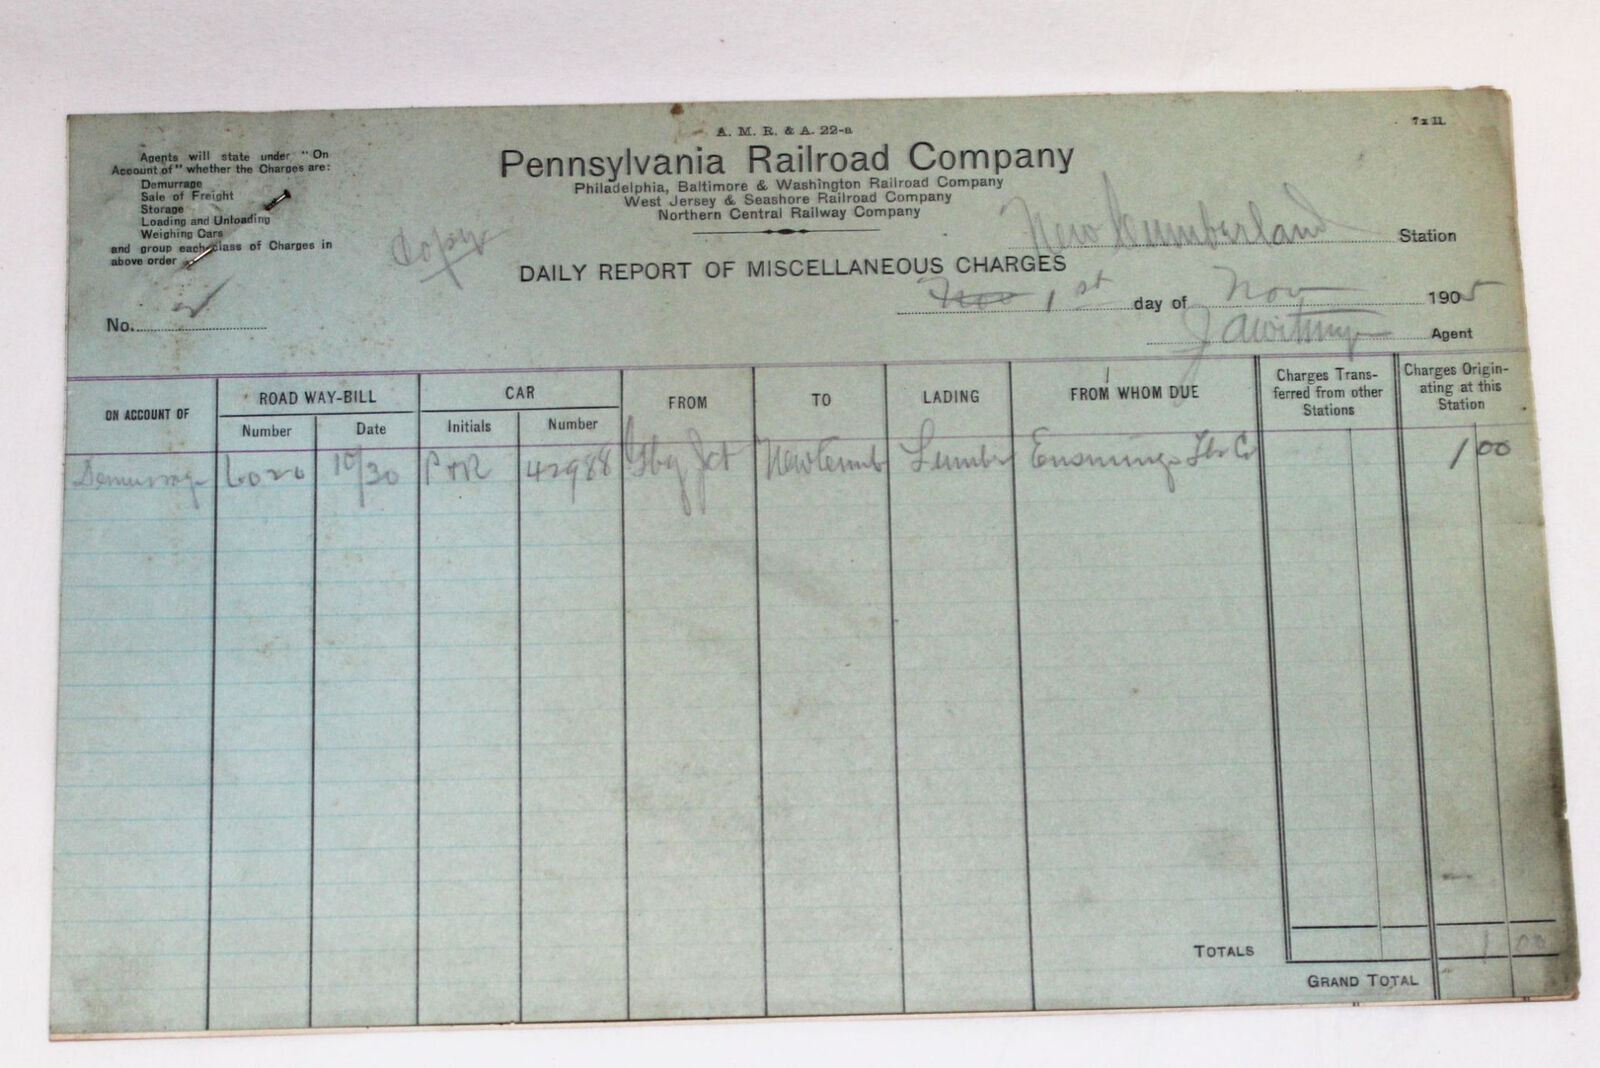 A. M. R. & A. 22-a
7 x 11.
Pennsylvania Railroad Company
Philadelphia, Baltimore & Washington Railroad Company
West Jersey & Seashore Railroad Company
Northern Central Railway Company
Agents will state under "On
Account of" whether the Charges are:
Demurrage
Sale of Freight
Storage
Loading and Unloading
Weighing Cars
and group each class of Charges in
above order
Copy
New Cumberland Station
DAILY REPORT OF MISCELLANEOUS CHARGES
Nov 1st day of Nov 1905
No.
Agent
ON ACCOUNT OF
ROAD WAY-BILL
Number
Date
CAR
Initials
Number
FROM
TO
LADING
FROM WHOM DUE
Charges Trans-
ferred from other
Stations
Charges Origin-
ating at this
Station
Demurrage 6020 10/30 PRR 42988 Jct New Cumb Lumber 1 00
TOTALS 1 00
GRAND TOTAL